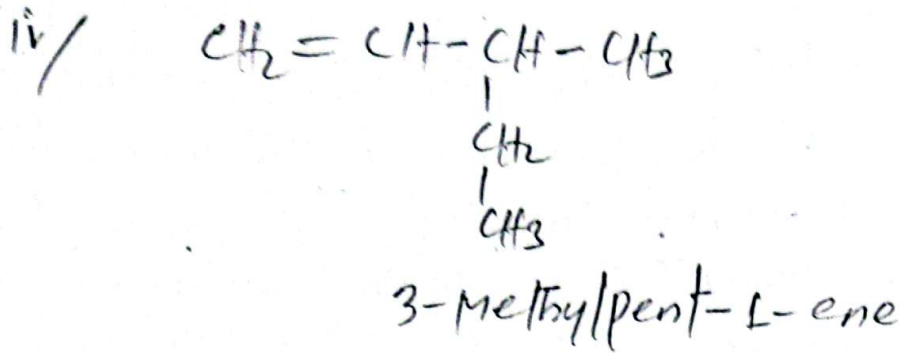 iv/ CH₂ = CH - CH - CH₃
CH₂
CH₃
3-Methylpent-1-ene